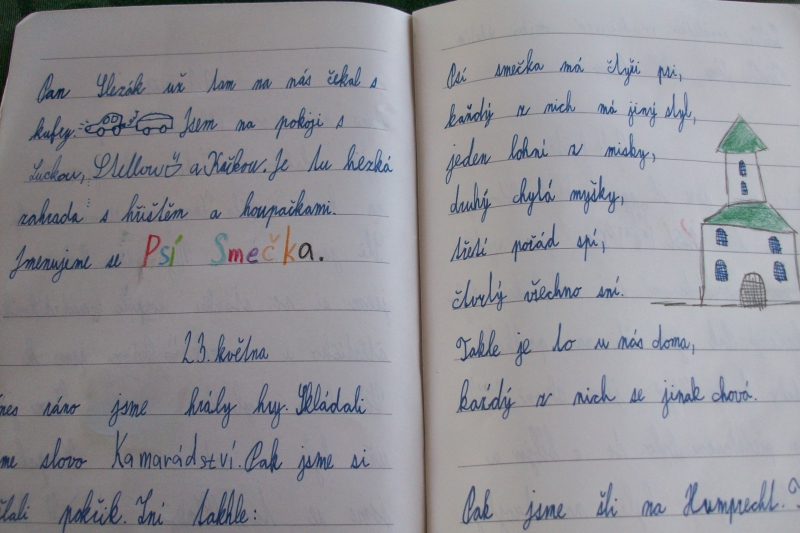 Pan Slezák už tam na nás čekal s
kufry. Jsem na pokoji s
Luckou, Stellou a Kačkou. Je tu hezká
zahrada s hřištěm a houpačkami.
Jmenujeme se Psí Smečka.
23. května
nes ráno jsme hrály hry. Skládali
me slovo Kamarádství. Pak jsme si
pokřik. Zní takhle:
Psí smečka má čtyři psi,
každý z nich má jiný styl,
jeden lohni z misky,
druhý chytá myšky,
třetí pořád spí,
čtvrtý všechno sní.
Takle je to u nás doma,
každý z nich se jinak chová.
Pak jsme šli na Humprecht.